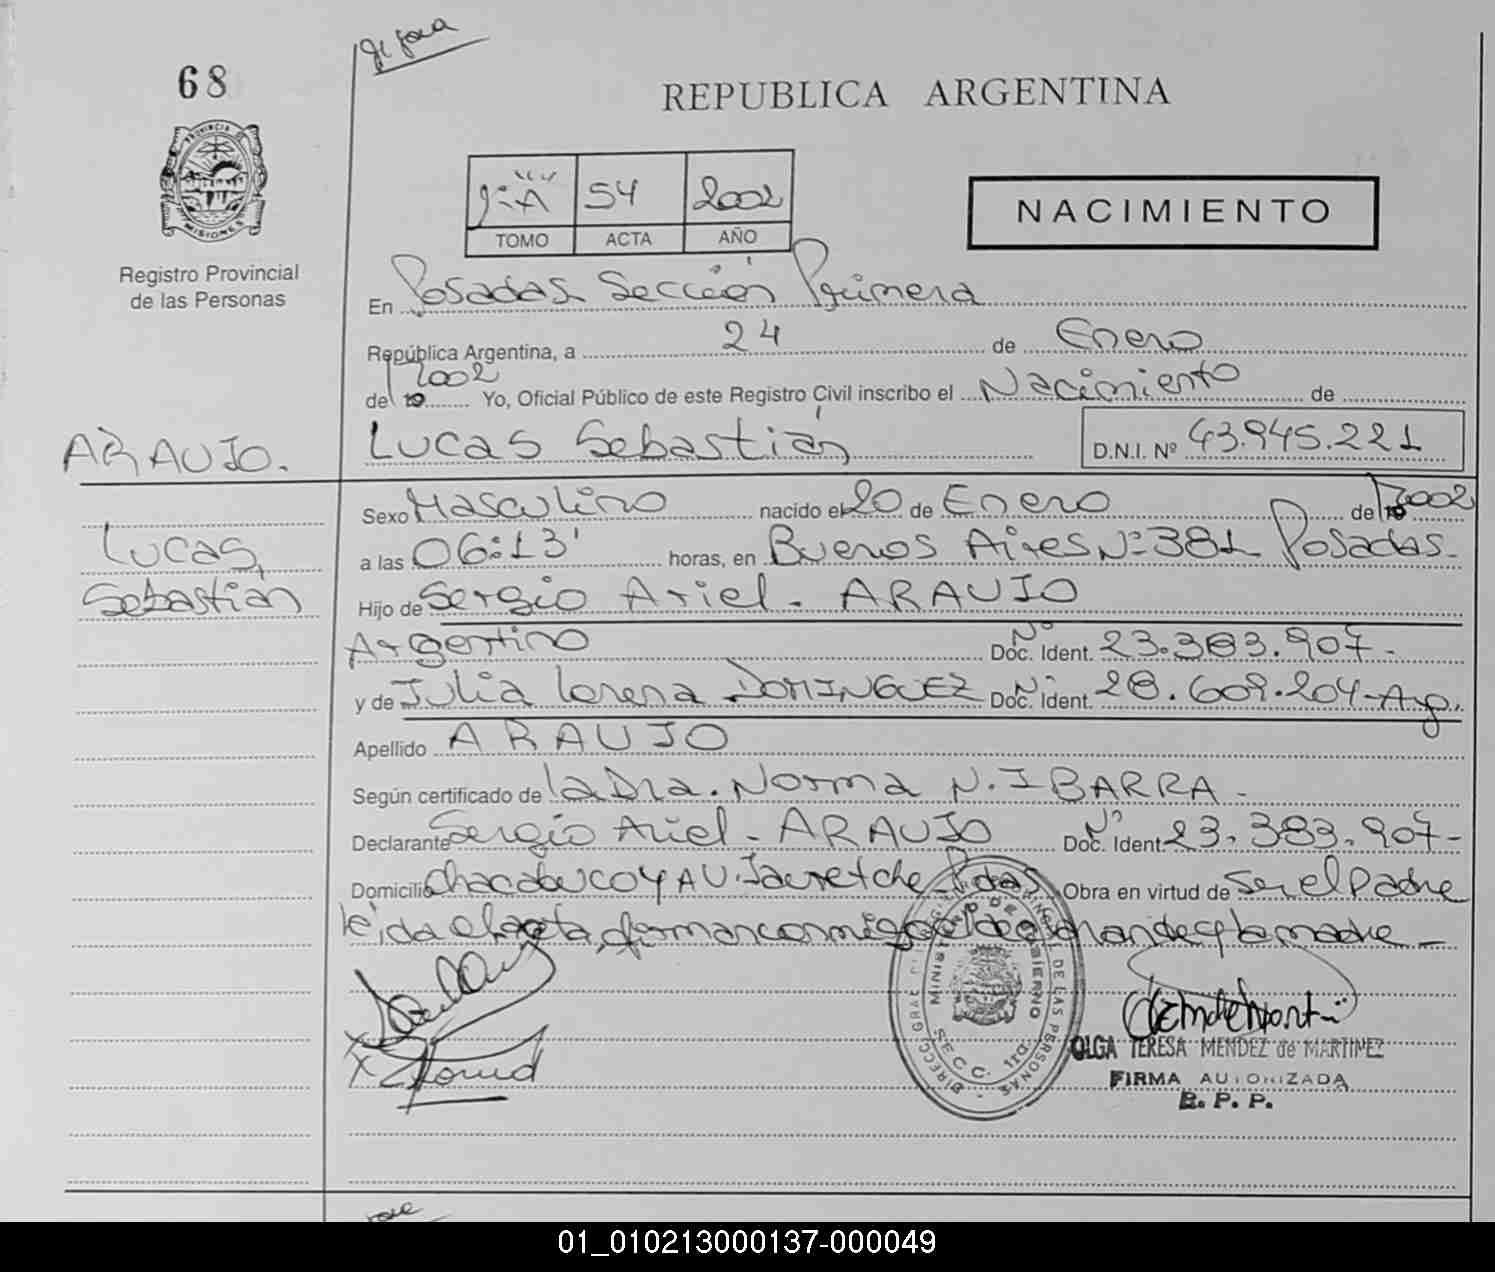 68
REPUBLICA ARGENTINA
54 2002
TOMO ACTA AÑO
NACIMIENTO
PROVINCIA DE MISIONES
Registro Provincial
de las Personas
En Posadas Sección Primera
República Argentina, a 24 de Enero
de 2002 Yo, Oficial Público de este Registro Civil inscribo el Nacimiento de
ARAUJO. Lucas Sebastián D.N.I. Nº 43.945.221
Sexo Masculino nacido el 20 de Enero de 2002
Lucas, a las 06:13' horas, en Buenos Aires Nº 381 Posadas-
Sebastián Hijo de Sergio Ariel - ARAUJO
Argentino Doc. Ident. Nº 23.383.907-
y de Julia Lorena DOMINGUEZ Doc. Ident. Nº 28.609.204-Arg.
Apellido ARAUJO
Según certificado de la Dra. Norma N. IBARRA-
Declarante Sergio Ariel - ARAUJO Doc. Ident. Nº 23.383.907-
Domicilio Chacabuco y AV. Jauretche - Pdas Obra en virtud de Ser el Padre
leída el acta, firman conmigo el declarante y la madre-
MINISTERIO DE GOBIERNO
SECC. 1ra.
OLGA TERESA MENDEZ de MARTINEZ
FIRMA AUTORIZADA
R. P. P.
01_010213000137-000049